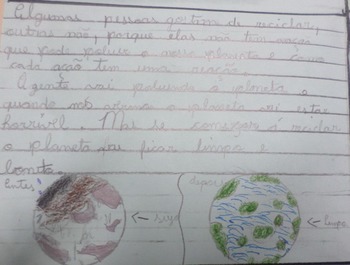 Algumas pessoas gostam de reciclar,
outras não, porque elas não tem noção
que pode poluir o nosso planeta e como
cada ação tem uma reação.
A gente vai poluindo o planeta e
quando nós o planeta vai estar
horrivel. Mas se á reciclar
o planeta vai ficar limpo e
bonito.
Antes
depois
← sujo
← limpo